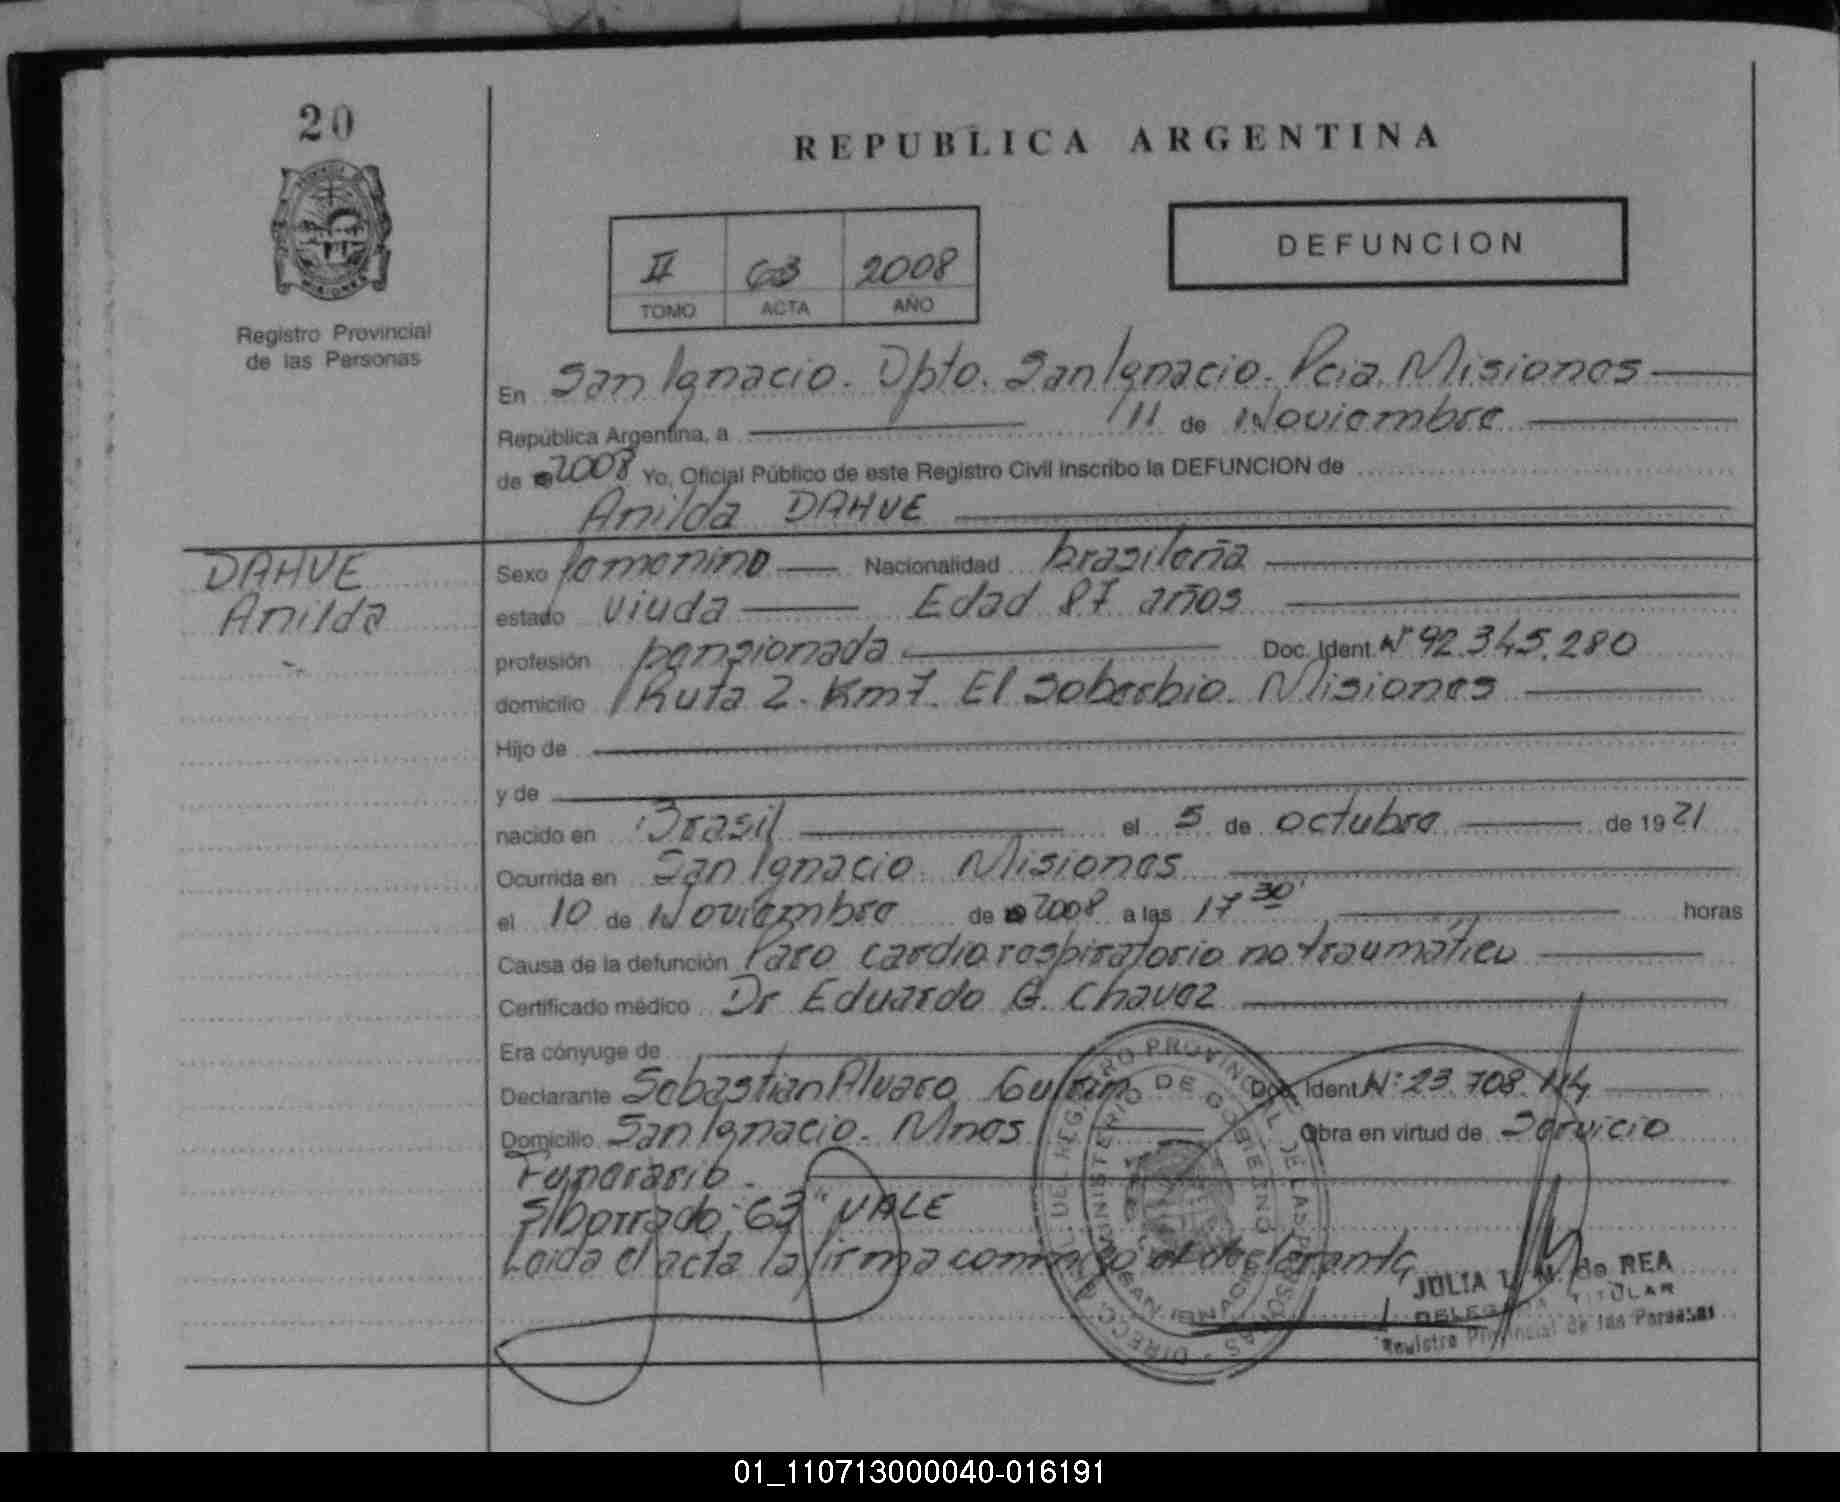 20
REPUBLICA ARGENTINA
II 63 2008
TOMO ACTA AÑO
DEFUNCION
Registro Provincial
de las Personas
En San Ignacio. Dpto. San Ignacio. Pcia. Misiones
República Argentina, a 11 de Noviembre
de 2008 Yo, Oficial Público de este Registro Civil inscribo la DEFUNCION de
Anilda DAHUE
DAHUE
Anilda
Sexo femenino Nacionalidad brasileña
estado viuda Edad 87 años
profesión pensionada Doc. Ident. Nº 92.345.280
domicilio Ruta 2. Km 7. El Soberbio. Misiones
Hijo de
y de
nacido en Brasil el 5 de octubre de 1921
Ocurrida en San Ignacio. Misiones
el 10 de Noviembre de 2008 a las 17 30' horas
Causa de la defunción Paro cardiorespiratorio no traumático
Certificado médico Dr Eduardo G. Chavez
Era cónyuge de
Declarante Sebastian Alvaro Doc. Ident. Nº 23.708.114
Domicilio San Ignacio. Mnes Obra en virtud de Servicio
Funerario.
S/borrado "63" VALE
Leida el acta la firma conmigo el declarante
JULIA de REA
DELEGADA TITULAR
Registro Provincial de las Personas
DIRECC. GRAL. DEL REGISTRO PROVINCIAL DE LAS PERSONAS
MINISTERIO DE GOBIERNO
01_110713000040-016191